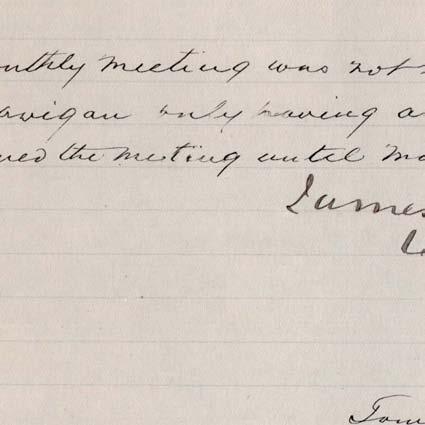 onthly meeting was not
avigan only having a
ned the meeting until Mo
James
Tow